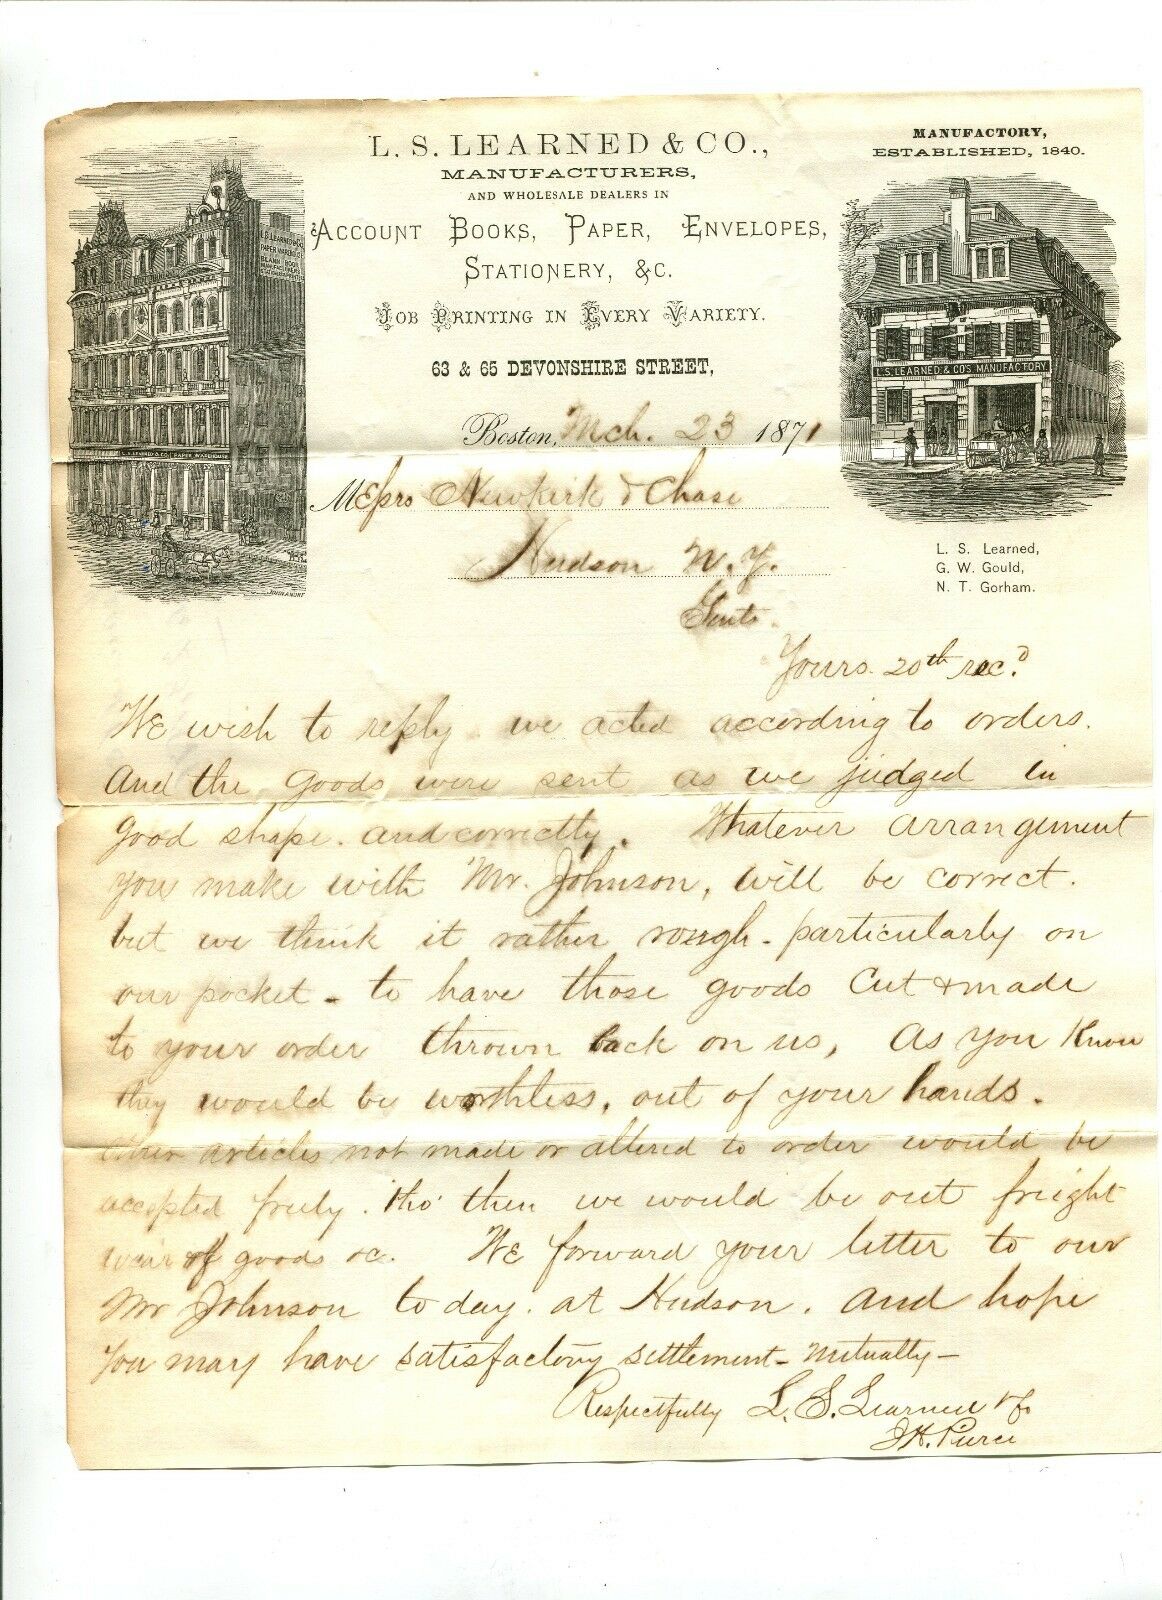 L. S. LEARNED & CO.,
MANUFACTURERS,
AND WHOLESALE DEALERS IN
ACCOUNT BOOKS, PAPER, ENVELOPES,
STATIONERY, &C.
JOB PRINTING IN EVERY VARIETY.
63 & 65 DEVONSHIRE STREET,
MANUFACTORY,
ESTABLISHED, 1840.
L. S. LEARNED & CO'S MANUFACTORY
L. S. LEARNED & CO. PAPER WAREHOUSE
L. S. Learned,
G. W. Gould,
N. T. Gorham.
Boston, Mch. 23 1871
Messrs Newkirk & Chase
Hudson N.Y.
Gents.
Yours 20th recd
We wish to reply we acted according to orders.
And the goods were sent as we judged in
good shape. and correctly. Whatever arrangement
you make with Mr. Johnson, will be correct.
but we think it rather rough - particularly on
our pocket - to have those goods Cut & made
to your order thrown back on us, As you know
they would be worthless, out of your hands.
Other articles not made or altered to order would be
accepted freely. tho' then we would be out freight
wear of goods &c. We forward your letter to our
Mr Johnson to day. at Hudson. And hope
You may have satisfactory settlement - mutually -
Respectfully L. S. Learned & Co
J H. Pierce